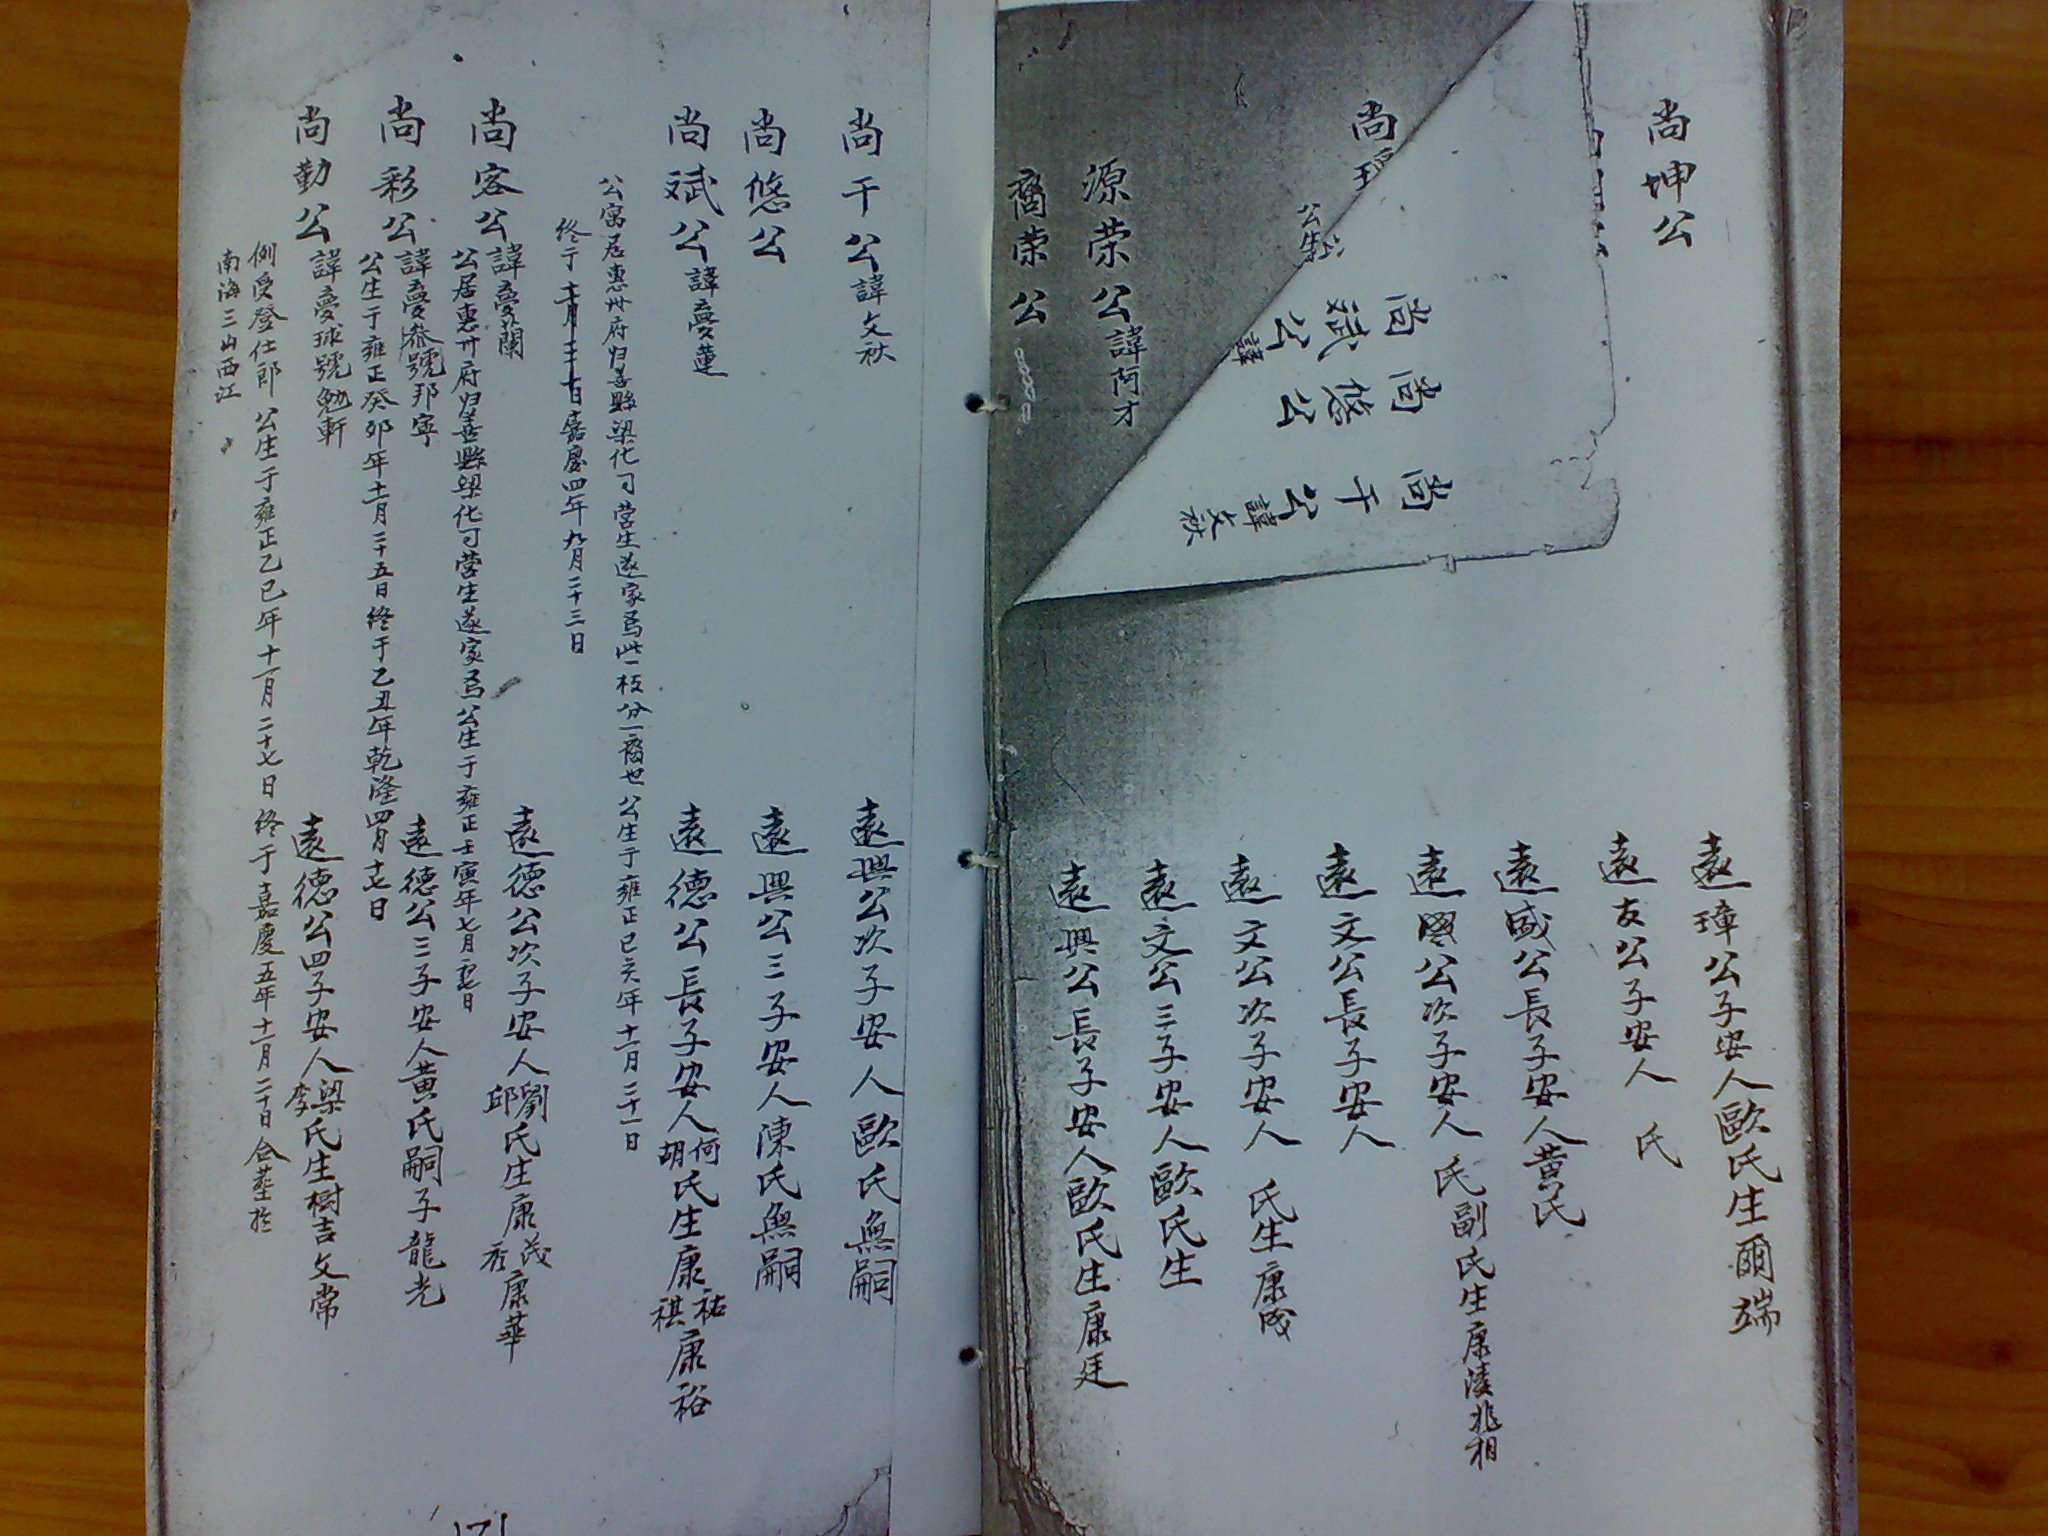 尚坤公
遠璋公子安人歐氏生爾端
遠友公子安人 氏
遠盛公長子安人黃氏
遠國公次子安人 氏副氏生康淩兆相
尚
遠文公長子安人
公生
遠文公次子安人 氏生康成
尚斌公諱
尚悠公
尚干公諱文秋
遠文公三子安人歐氏生
源荣公諱阿才
遠興公長子安人歐氏生康廷
裔荣公
尚干公諱文秋
遠興公次子安人歐氏無嗣
尚悠公
遠興公三子安人陳氏無嗣
尚斌公諱蔓蓮
遠德公長子安人何胡氏生康祐祺康裕
公寓居惠州府归善縣梁化司营生遂家焉此一枝分一裔也 公生于雍正己亥年十一月二十一日
終于 嘉慶四年九月二十三日
尚容公諱蔓蘭
遠德公次子安人劉邱氏生康茂秀康華
公居惠州府归善縣梁化司营生遂家焉公生于雍正壬寅年七月初七日
尚彩公諱蔓 號邦寧
遠德公三子安人黃氏嗣子龍光
公生于雍正癸卯年十一月二十五日終于乙丑年乾隆四月十七日
尚勤公諱蔓球號勉軒
遠德公四子安人梁李氏生樹吉文常
例受登仕郎 公生于雍正乙巳年十一月二十七日終于嘉慶五年十一月二十日合塟於
南海三山西江
171